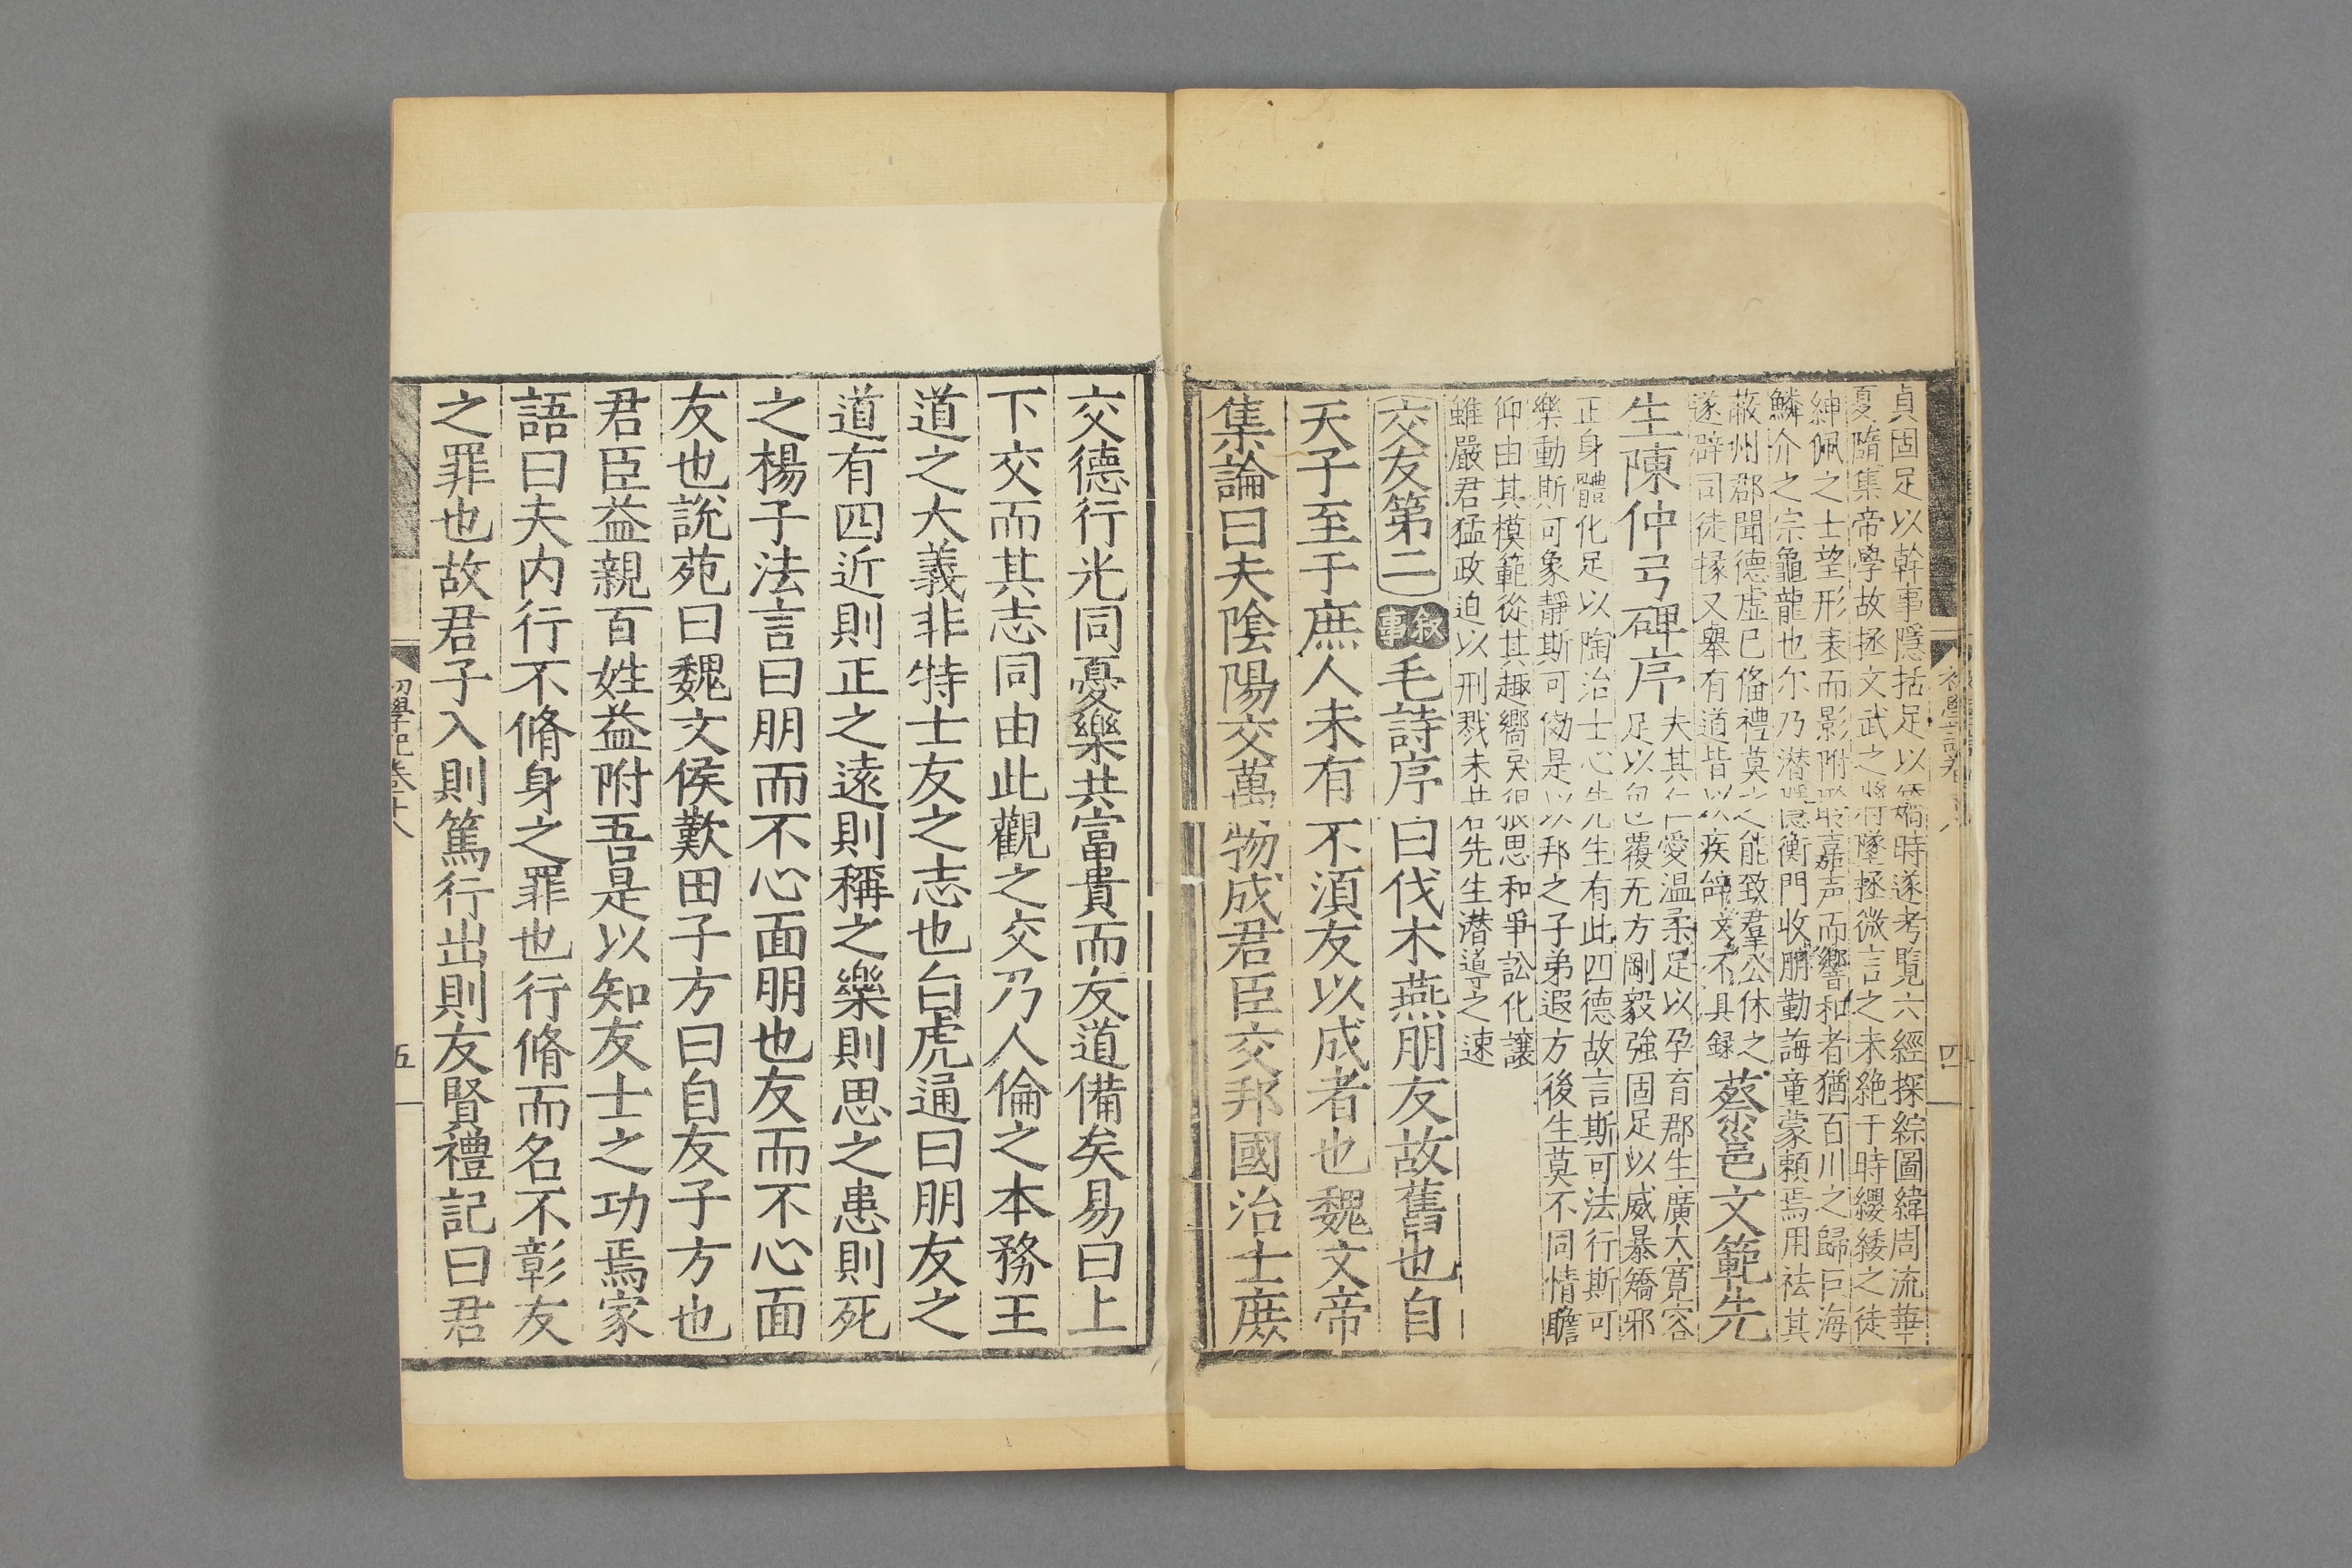 貞固足以幹事隱括足以矯時遂考覧六經探綜圖緯周流華
夏隨集帝學故拯文武之將墜拯微言之未絶于時纓緌之徒
紳佩之士望形表而影附聆嘉声而響和者猶百川之歸巨海
鱗介之宗龜龍也尔乃潜隱衡門收朋勤誨童蒙頼焉用祛其
蔽州郡聞德虛己俻禮莫之能致羣公休之
遂辟司徒掾又舉有道皆以疾辭文不具録
蔡邕文範先
生陳仲弓碑序
夫其仁愛温柔足以孕育郡生廣大寛容
足以包覆无方剛毅強固足以威暴矯邪
正身體化足以陶治士心先生有此四德故言斯可法行斯可
樂動斯可象靜斯可俲是以邦之子弟遐方後生莫不同情瞻
仰由其模範從其趣嚮戾很思和爭訟化讓
雖嚴君猛政迫以刑戮未若先生潜導之速
交友第二
敘事
毛詩序曰伐木燕朋友故舊也自
天子至于庶人未有不湏友以成者也魏文帝
集論曰夫陰陽交萬物成君臣交邦國治士庶
初學記卷十八
四
交德行光同憂樂共富貴而友道備矣易曰上
下交而其志同由此觀之交乃人倫之本務王
道之大義非特士友之志也白虎通曰朋友之
道有四近則正之遠則稱之樂則思之患則死
之楊子法言曰朋而不心面朋也友而不心面
友也說苑曰魏文侯歎田子方曰自友子方也
君臣益親百姓益附吾是以知友士之功焉家
語曰夫内行不脩身之罪也行脩而名不彰友
之罪也故君子入則篤行出則友賢禮記曰君
初學記卷十八
五